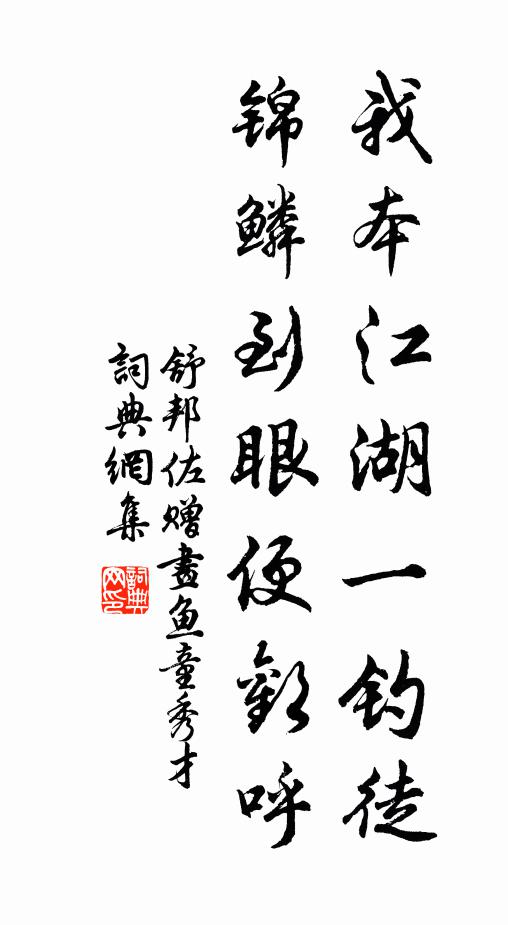 我本江湖一钓徒
锦鳞到眼便欢呼
舒邦佐赠畫鱼童秀才
詞典網集
詞典
网印